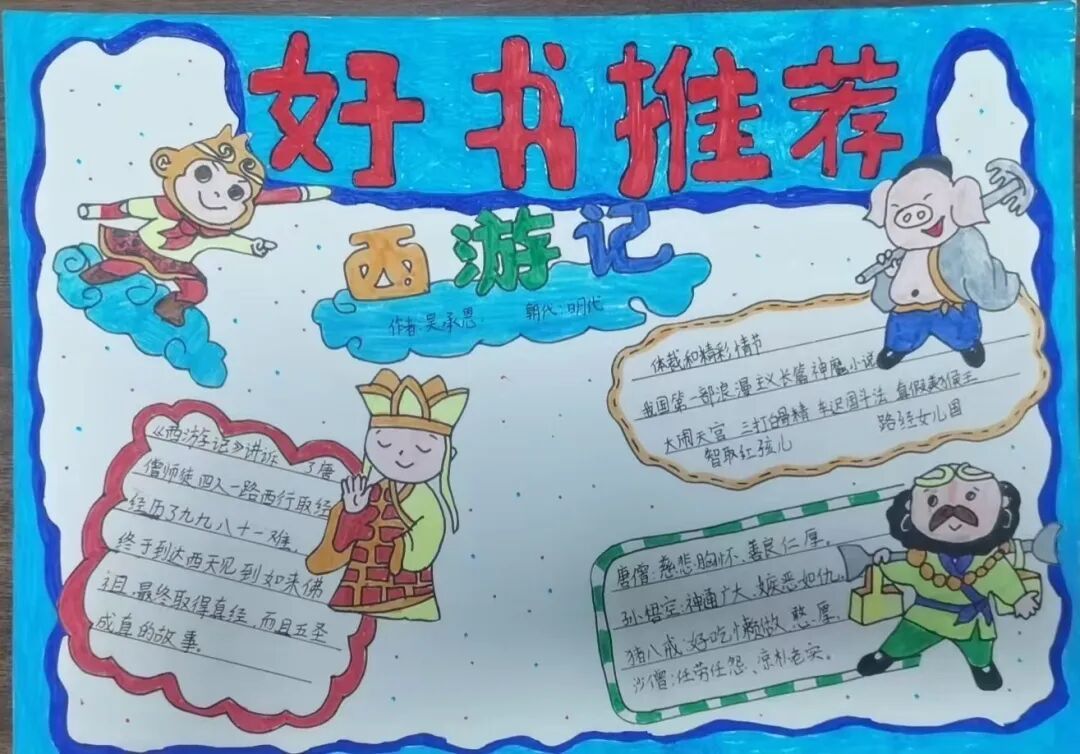 好书推荐
西游记
作者:吴承恩. 朝代:明代
体裁和精彩情节
我国第一部浪漫主义长篇神魔小说
大闹天宫 三打白骨精 车迟国斗法 真假美猴王
智取红孩儿 路经女儿国
《西游记》讲诉了唐
僧师徒四人一路西行取经
经历了九九八十一难,
终于到达西天见到如来佛
祖,最终取得真经,而且五圣
成真的故事。
唐僧:慈悲胸怀、善良仁厚。
孙悟空:神通广大、嫉恶如仇。
猪八戒:好吃懒做、憨厚。
沙僧:任劳任怨、淳朴老实。